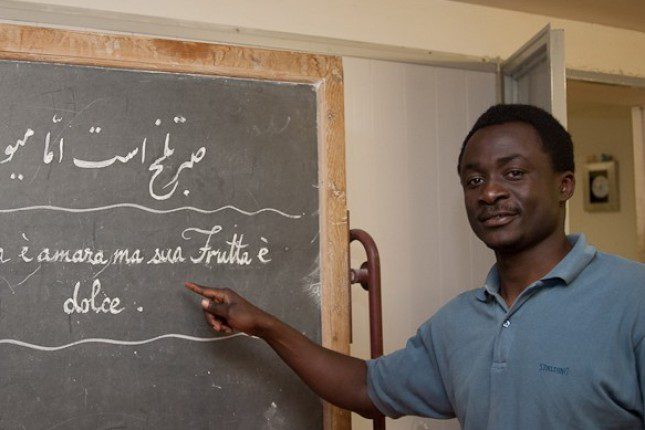 صبر تلخ است امّا میو
a è amara ma sua Frutta è
dolce.